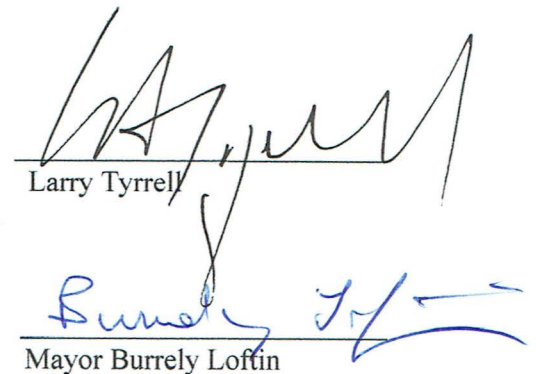 Larry Tyrrell
Burrely Loftin
Mayor Burrely Loftin